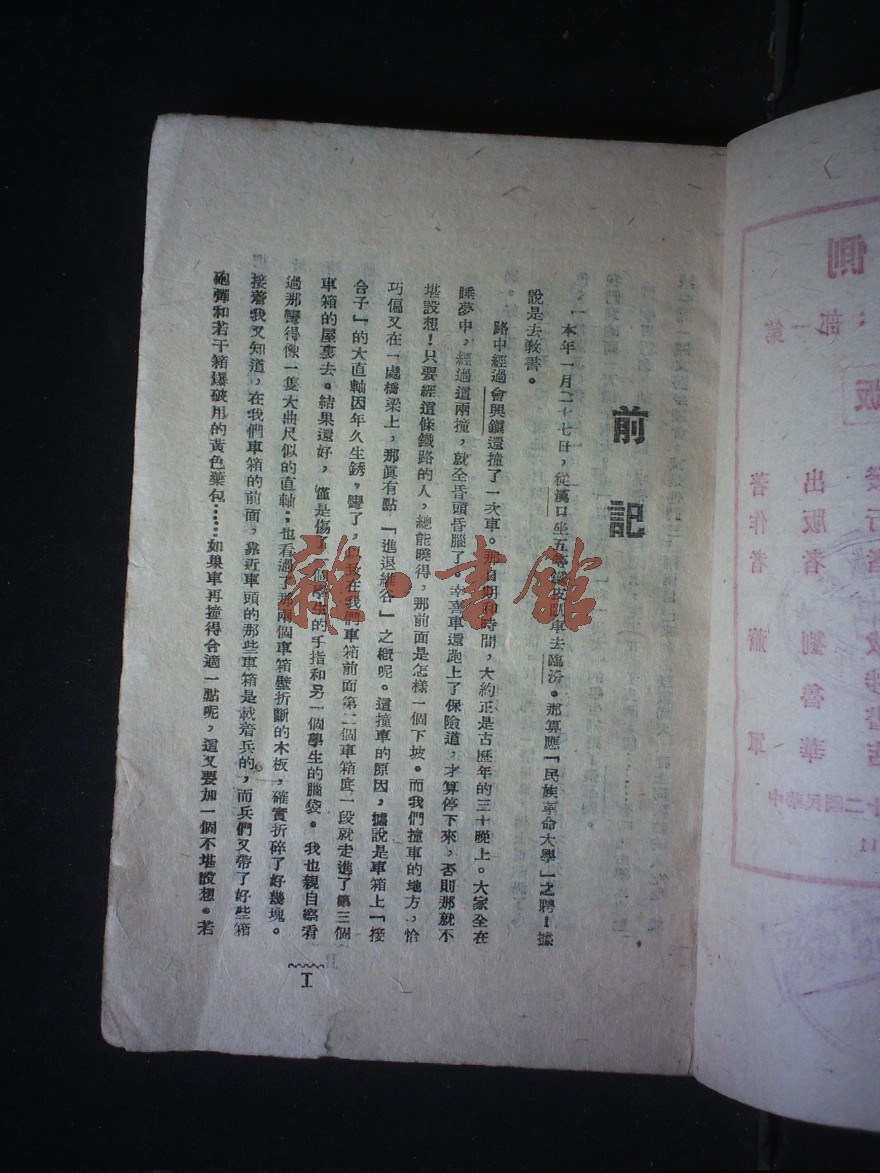 前記
本年一月二十七日，從漢口坐五等鐵皮臥車去臨汾。那算應「民族革命大學」之聘！據
說是去教書。
路中經過會興鎮還撞了一次車。那自明和時間，大約正是古歷年的三十晚上。大家全在
睡夢中，經過這兩撞，就全昏頭昏腦了。幸喜車還跑上了保險道，才算停下來，否則那就不
堪設想！只要經這條鐵路的人，總能曉得，那前面是怎樣一個下坡。而我們撞車的地方，恰
巧偏又在一處橋梁上，那眞有點「進退維谷」之概呢。這撞車的原因，據說是車箱上「接
合子」的大直軸因年久生銹，彎了，以致在我們車箱前面第二個車箱底一段就走進了第三個
車箱的屋裏去。結果還好，僅是傷了一個學生的手指和另一個學生的腦袋。我也親自察看
過那彎得像一隻大曲尺似的直軸；也看過了那兩個車箱壁折斷的木板，確實折碎了好幾塊。
接着我又知道，在我們車箱的前面，靠近車頭的那些車箱是載着兵的，而兵們又帶了好些箱
砲彈和若干箱爆破用的黃色藥包……如果車再撞得合適一點呢，這又要加一個不堪設想。若
I
雜·書館
側
第一部
版
著作者 蕭軍
出版者 劉魯華
行者
書店
中華民國二十